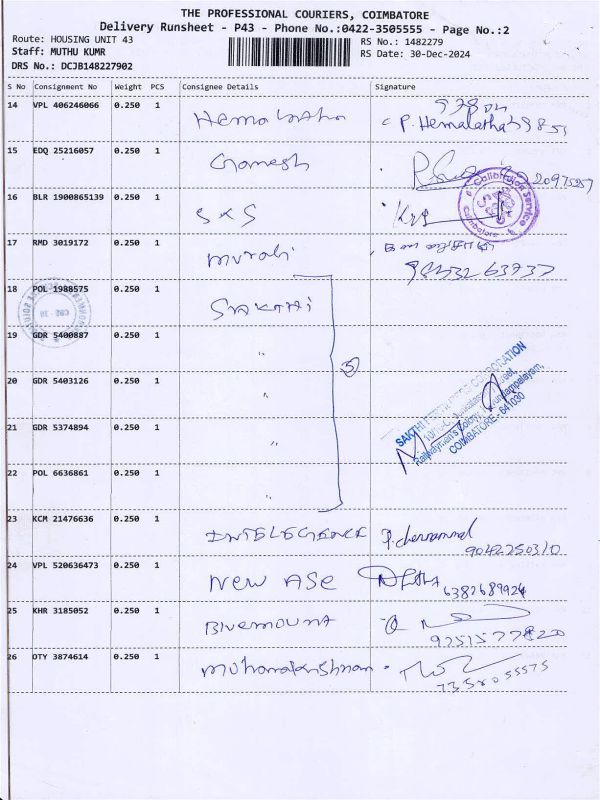 THE PROFESSIONAL COURIERS, COIMBATORE
Delivery Runsheet - P43 - Phone No.:0422-3505555 - Page No.:2
Route: HOUSING UNIT 43
RS No.: 1482279
Staff: MUTHU KUMR
RS Date: 30-Dec-2024
DRS No.: DCJB148227902
S No Consignment No Weight PCS Consignee Details Signature
14 VPL 406246066 0.250 1 Hemalatha P. Hemalatha
15 EDQ 25216057 0.250 1 Gamesh
16 BLR 1900865139 0.250 1 SKS
Calibration Service
Coimbatore
17 RMD 3019172 0.250 1 Murali
18 POL 1988575 0.250 1 SAKTHI
19 GDR 5400887 0.250 1 "
20 GDR 5403126 0.250 1 "
5
21 GDR 5374894 0.250 1 "
SAKTHI CORPORATION
COIMBATORE - 641030
22 POL 6636861 0.250 1 "
23 KCM 21476636 0.250 1 INTELEGENCE
9042250310
24 VPL 520636473 0.250 1 NEW ASE
6382689924
25 KHR 3185052 0.250 1 BlueMOUNT
26 OTY 3874614 0.250 1